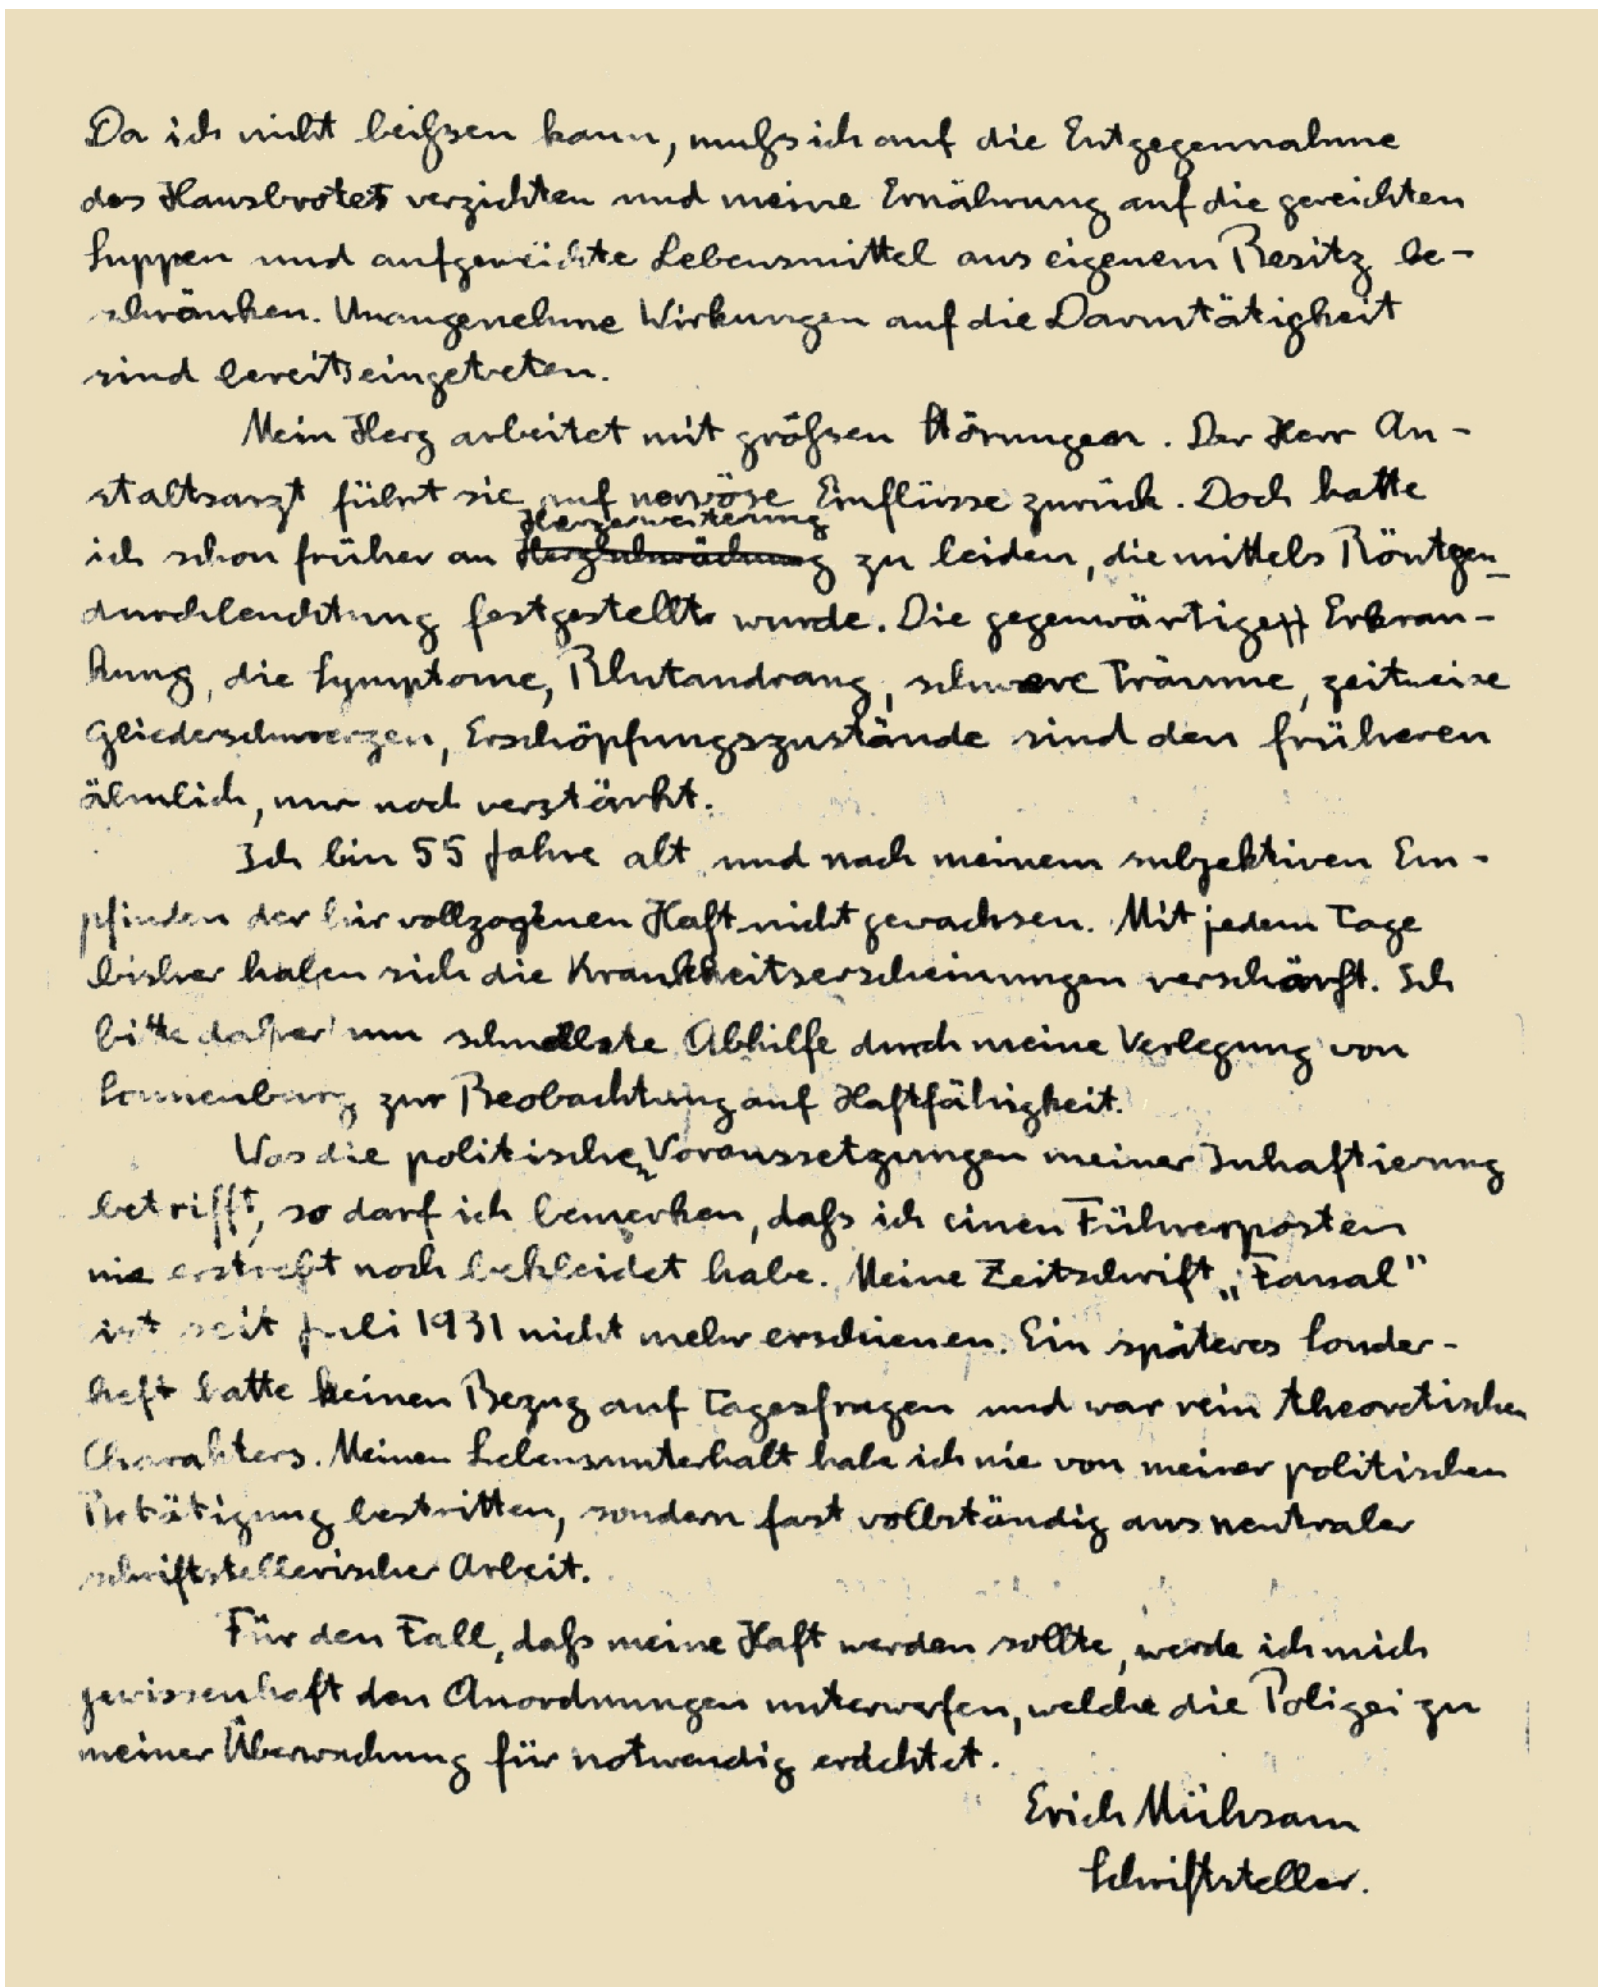 Da ich nicht beißen kann, muß ich auf die Entgegennahme
des Hausbrotes verzichten und meine Ernährung auf die gereichten
Suppen und aufgeweichte Lebensmittel aus eigenem Besitz be-
schränken. Unangenehme Wirkungen auf die Darmtätigkeit
sind bereits eingetreten.
Mein Herz arbeitet mit großen Störungen. Der Herr An-
staltsarzt führt sie auf nervöse Einflüsse zurück. Doch hatte
Herzerweiterung
ich schon früher an Herzschwächung zu leiden, die mittels Röntgen-
durchleuchtung festgestellt wurde. Die gegenwärtige Erkran-
kung, die Symptome, Blutandrang, schwere Träume, zeitweise
Gliederschmerzen, Erschöpfungszustände sind den früheren
ähnlich, nur noch verstärkt.
Ich bin 55 Jahre alt und nach meinem subjektiven Em-
pfinden der hier vollzogenen Haft nicht gewachsen. Mit jedem Tage
bisher haben sich die Krankheitserscheinungen verschärft. Ich
bitte daher um schnellste Abhilfe durch meine Verlegung von
Sonnenburg zur Beobachtung auf Haftfähigkeit.
Was die politischen Voraussetzungen meiner Inhaftierung
betrifft, so darf ich bemerken, daß ich einen Führerposten
nie erstrebt noch bekleidet habe. Meine Zeitschrift „Fanal“
ist seit Juli 1931 nicht mehr erschienen. Ein späteres Sonder-
heft hatte keinen Bezug auf Tagesfragen und war rein theoretischen
Charakters. Meinen Lebensunterhalt habe ich nie von meiner politischen
Betätigung bestritten, sondern fast vollständig aus neutraler
schriftstellerischer Arbeit.
Für den Fall, daß meine Haft werden sollte, werde ich mich
gewissenhaft den Anordnungen unterwerfen, welche die Polizei zu
meiner Überwachung für notwendig erachtet.
Erich Mühsam
Schriftsteller.